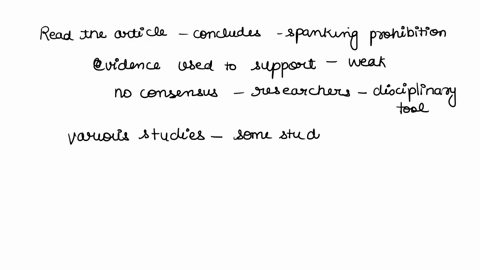 Read the article - concludes - spanking prohibition
Evidence used to support - weak
no consensus - researchers - disciplinary
tool
various studies - some stud